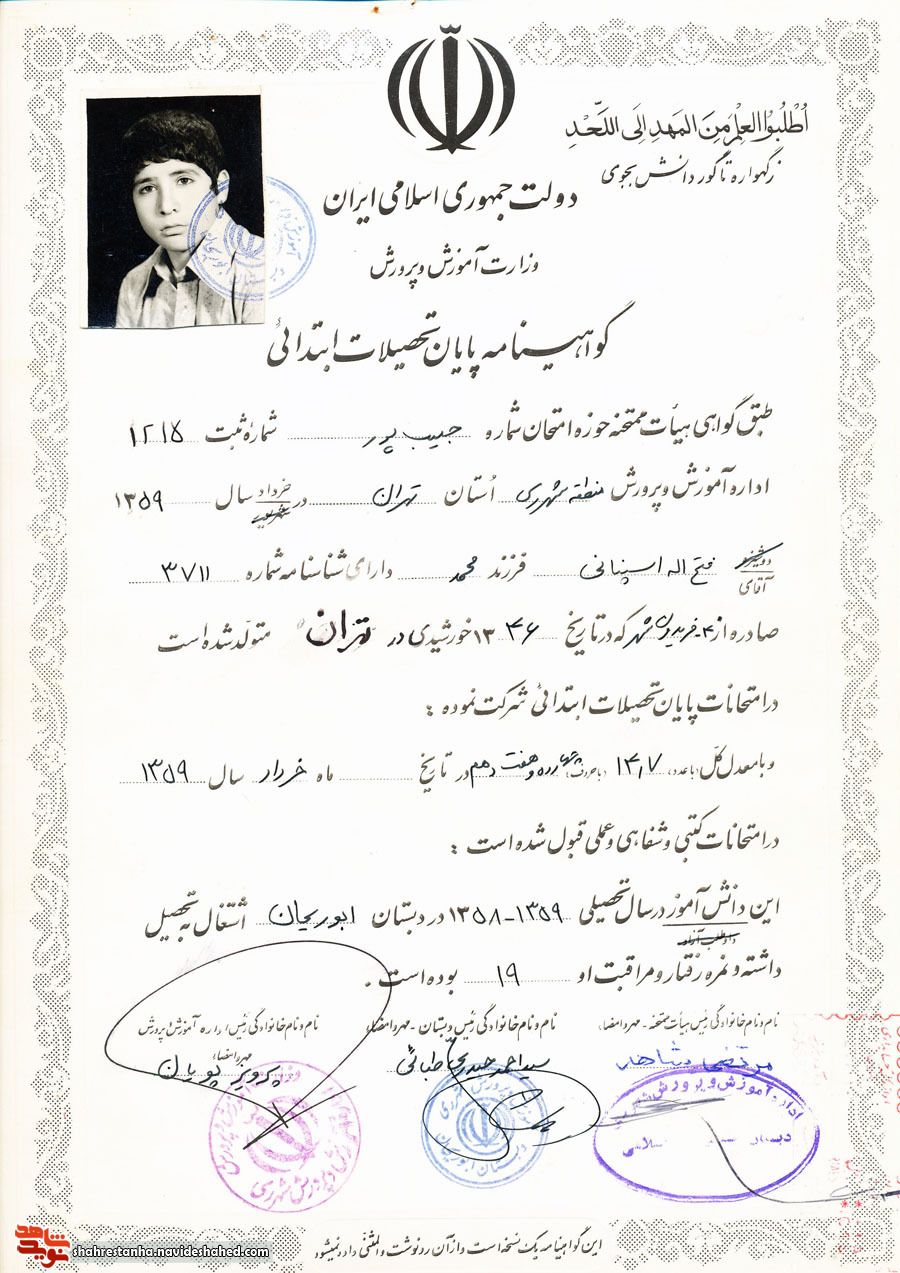 اُطْلُبُوا العِلْمَ مِنَ المَهدِ اِلَی اللَّحْدِ
ز گهواره تا گور دانش بجوی
دولت جمهوری اسلامی ایران
وزارت آموزش و پرورش
گواهینامه پایان تحصیلات ابتدائی
طبق گواهی هیأت ممتحنه حوزه امتحان شماره حبیب پور شماره ثبت ۱۲۱۵
اداره آموزش و پرورش منطقه شهرری اُستان تهران در خرداد سال ۱۳۵۹
دوشیزه آقای فتح اله اسپنانی فرزند محمد دارای شناسنامه شماره ۳۷۱۱
صادره از ۴-فریدونشهر که در تاریخ ۱۳۴۶ خورشیدی در تهران متولد شده است
در امتحانات پایان تحصیلات ابتدائی شرکت نموده :
و با معدل کل (با عدد) ۱۴٫۷ (با حروف) چهارده و هفت دهم در تاریخ ماه خرداد سال ۱۳۵۹
در امتحانات کتبی و شفاهی و عملی قبول شده است :
این دانش آموز در سال تحصیلی ۱۳۵۹-۱۳۵۸ در دبستان ابوریحان اشتغال به تحصیل
داوطلب آزاد
داشته و نمره رفتار و مراقبت او ۱۹ بوده است .
نام و نام خانوادگی رئیس هیأت ممتحنه - مهر و امضاء نام و نام خانوادگی رئیس دبستان - مهر و امضاء نام و نام خانوادگی رئیس اداره آموزش و پرورش
مهر و امضاء
سید احمد حیدری طبائی پرویز پویان
اداره آموزش و پرورش
دبستان ابوریحان
این گواهینامه یک نسخه است و از آن رونوشت و المثنی داده نمیشود
نوید شاهد
shahrestanha.navideshahed.com